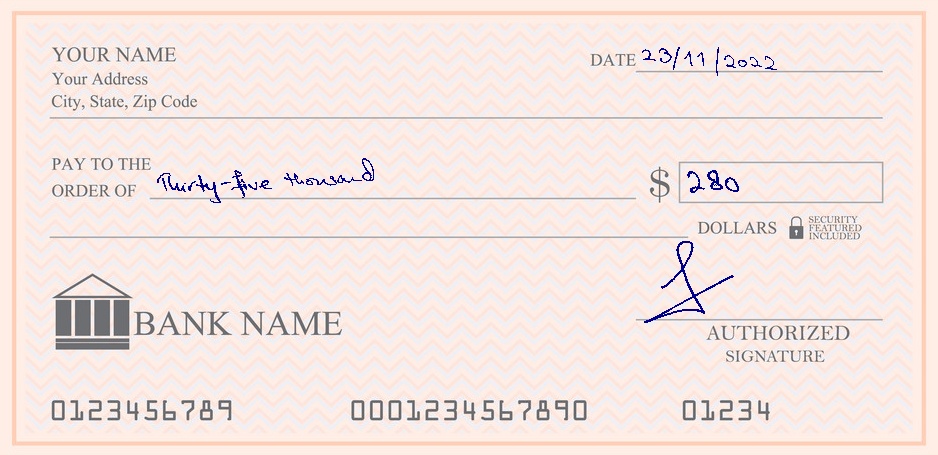 YOUR NAME
Your Address
City, State, Zip Code
DATE 23/11/2022
PAY TO THE
ORDER OF Thirty-five thousand $ 280
DOLLARS SECURITY
FEATURED
INCLUDED
BANK NAME
AUTHORIZED
SIGNATURE
0123456789 0001234567890 01234